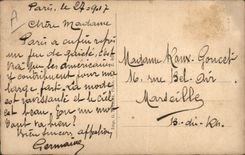 Paris, le 27-9-1917
Chère Madame
Paris a enfin repris
un peu de gaieté, c'est
vrai que les américains
y contribuent pour une
large part. La mode
est ravissante et le ciel
est beau, l'on au mot
tout va bien!
Bien sincères affection,
Germaine
Madame Kanv. Goncet
16. rue Bel-Air
Marseille
B-du-Rh.